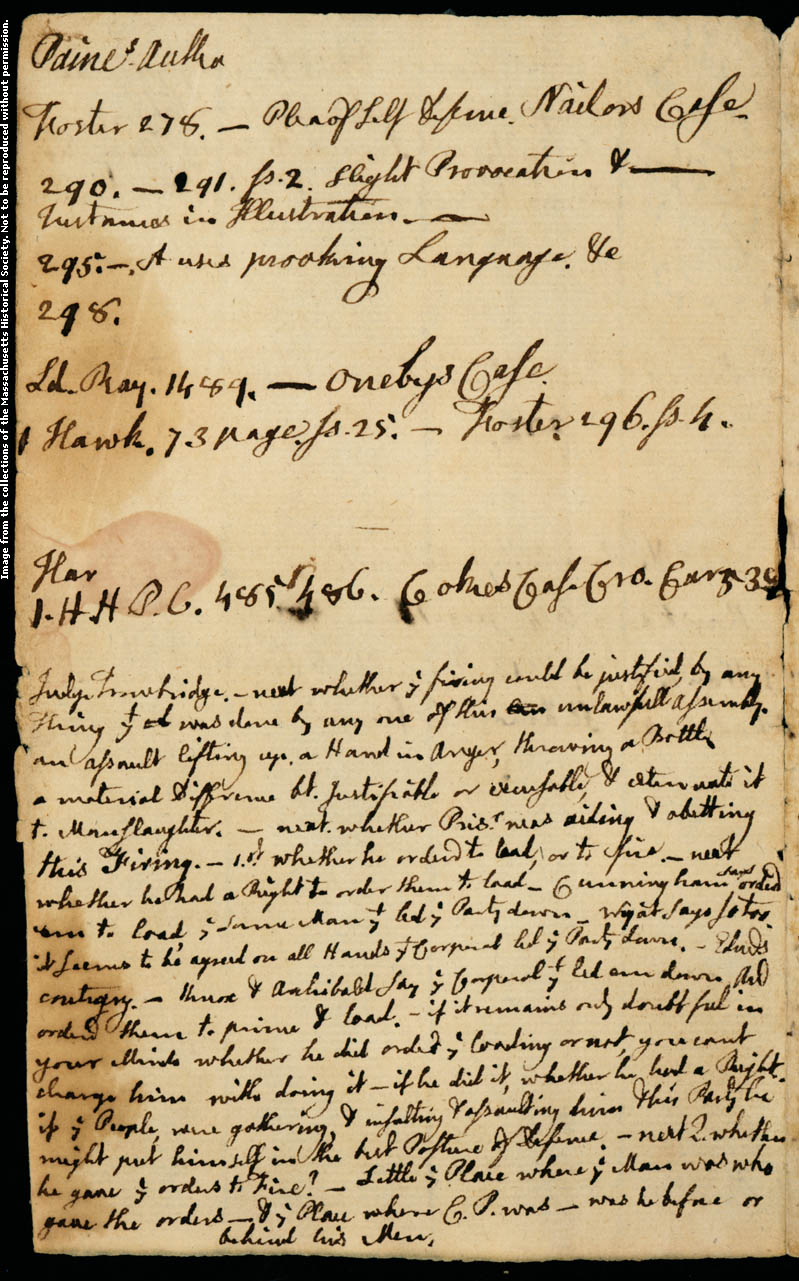 Image from the collections of the Massachusetts Historical Society. Not to be reproduced without permission.
Paine's Autho
Foster 278. — Plea of Self Defence. Nailors Case.
290. — 291. §. 2. slight Provocation &——
Instances in Illustration. ——
295. —. A uses provoking Language. &c
298.
Ld. Ray. 1489. — Onebys Case.
1 Hawk. 73 page. §. 25. — Foster. 296. §. 4.
Har
1. H.H P.C. 485. 486. Cokes Case Cro. Car. 538
Judge Trowbridge. — next whether ye firing could be justified, by any
Thing yt was done by any one of this unlawfull Assembly.
an assault lifting up a Hand in Anger, throwing a Bottle
a material Difference bt. Justifiable or excusable, & extenuate it
to Manslaughter. — next. whether Prisr. was aiding & abetting
this Firing. — 1.st whether he orderd to load, or to fire. — next
whether he had a Right to order them to load — Cunningham says orderd
em to load, ye same Man yt led ye Party down — Wyat says so too.
it seems to be agreed on all Hands yt Corporal led ye Party down. —
contigny. — Knox & Archibald say ye Corporal yt led em down, did
orderd them to prime & load. — if it remains only doubtful in
your Minds whether he did order ye loading or not, you cant
charge him with doing it — if he did it, whether he had a Right.
if ye People, were gathering, & insulting & assaulting him & this Party he
might put himself in the best Posture of Defence. — next Q. whether
he gave ye orders to Fire? — Settle ye Place where ye Man was who
gave the orders — & ye Place where C.P. was — was he before or
behind his Men,